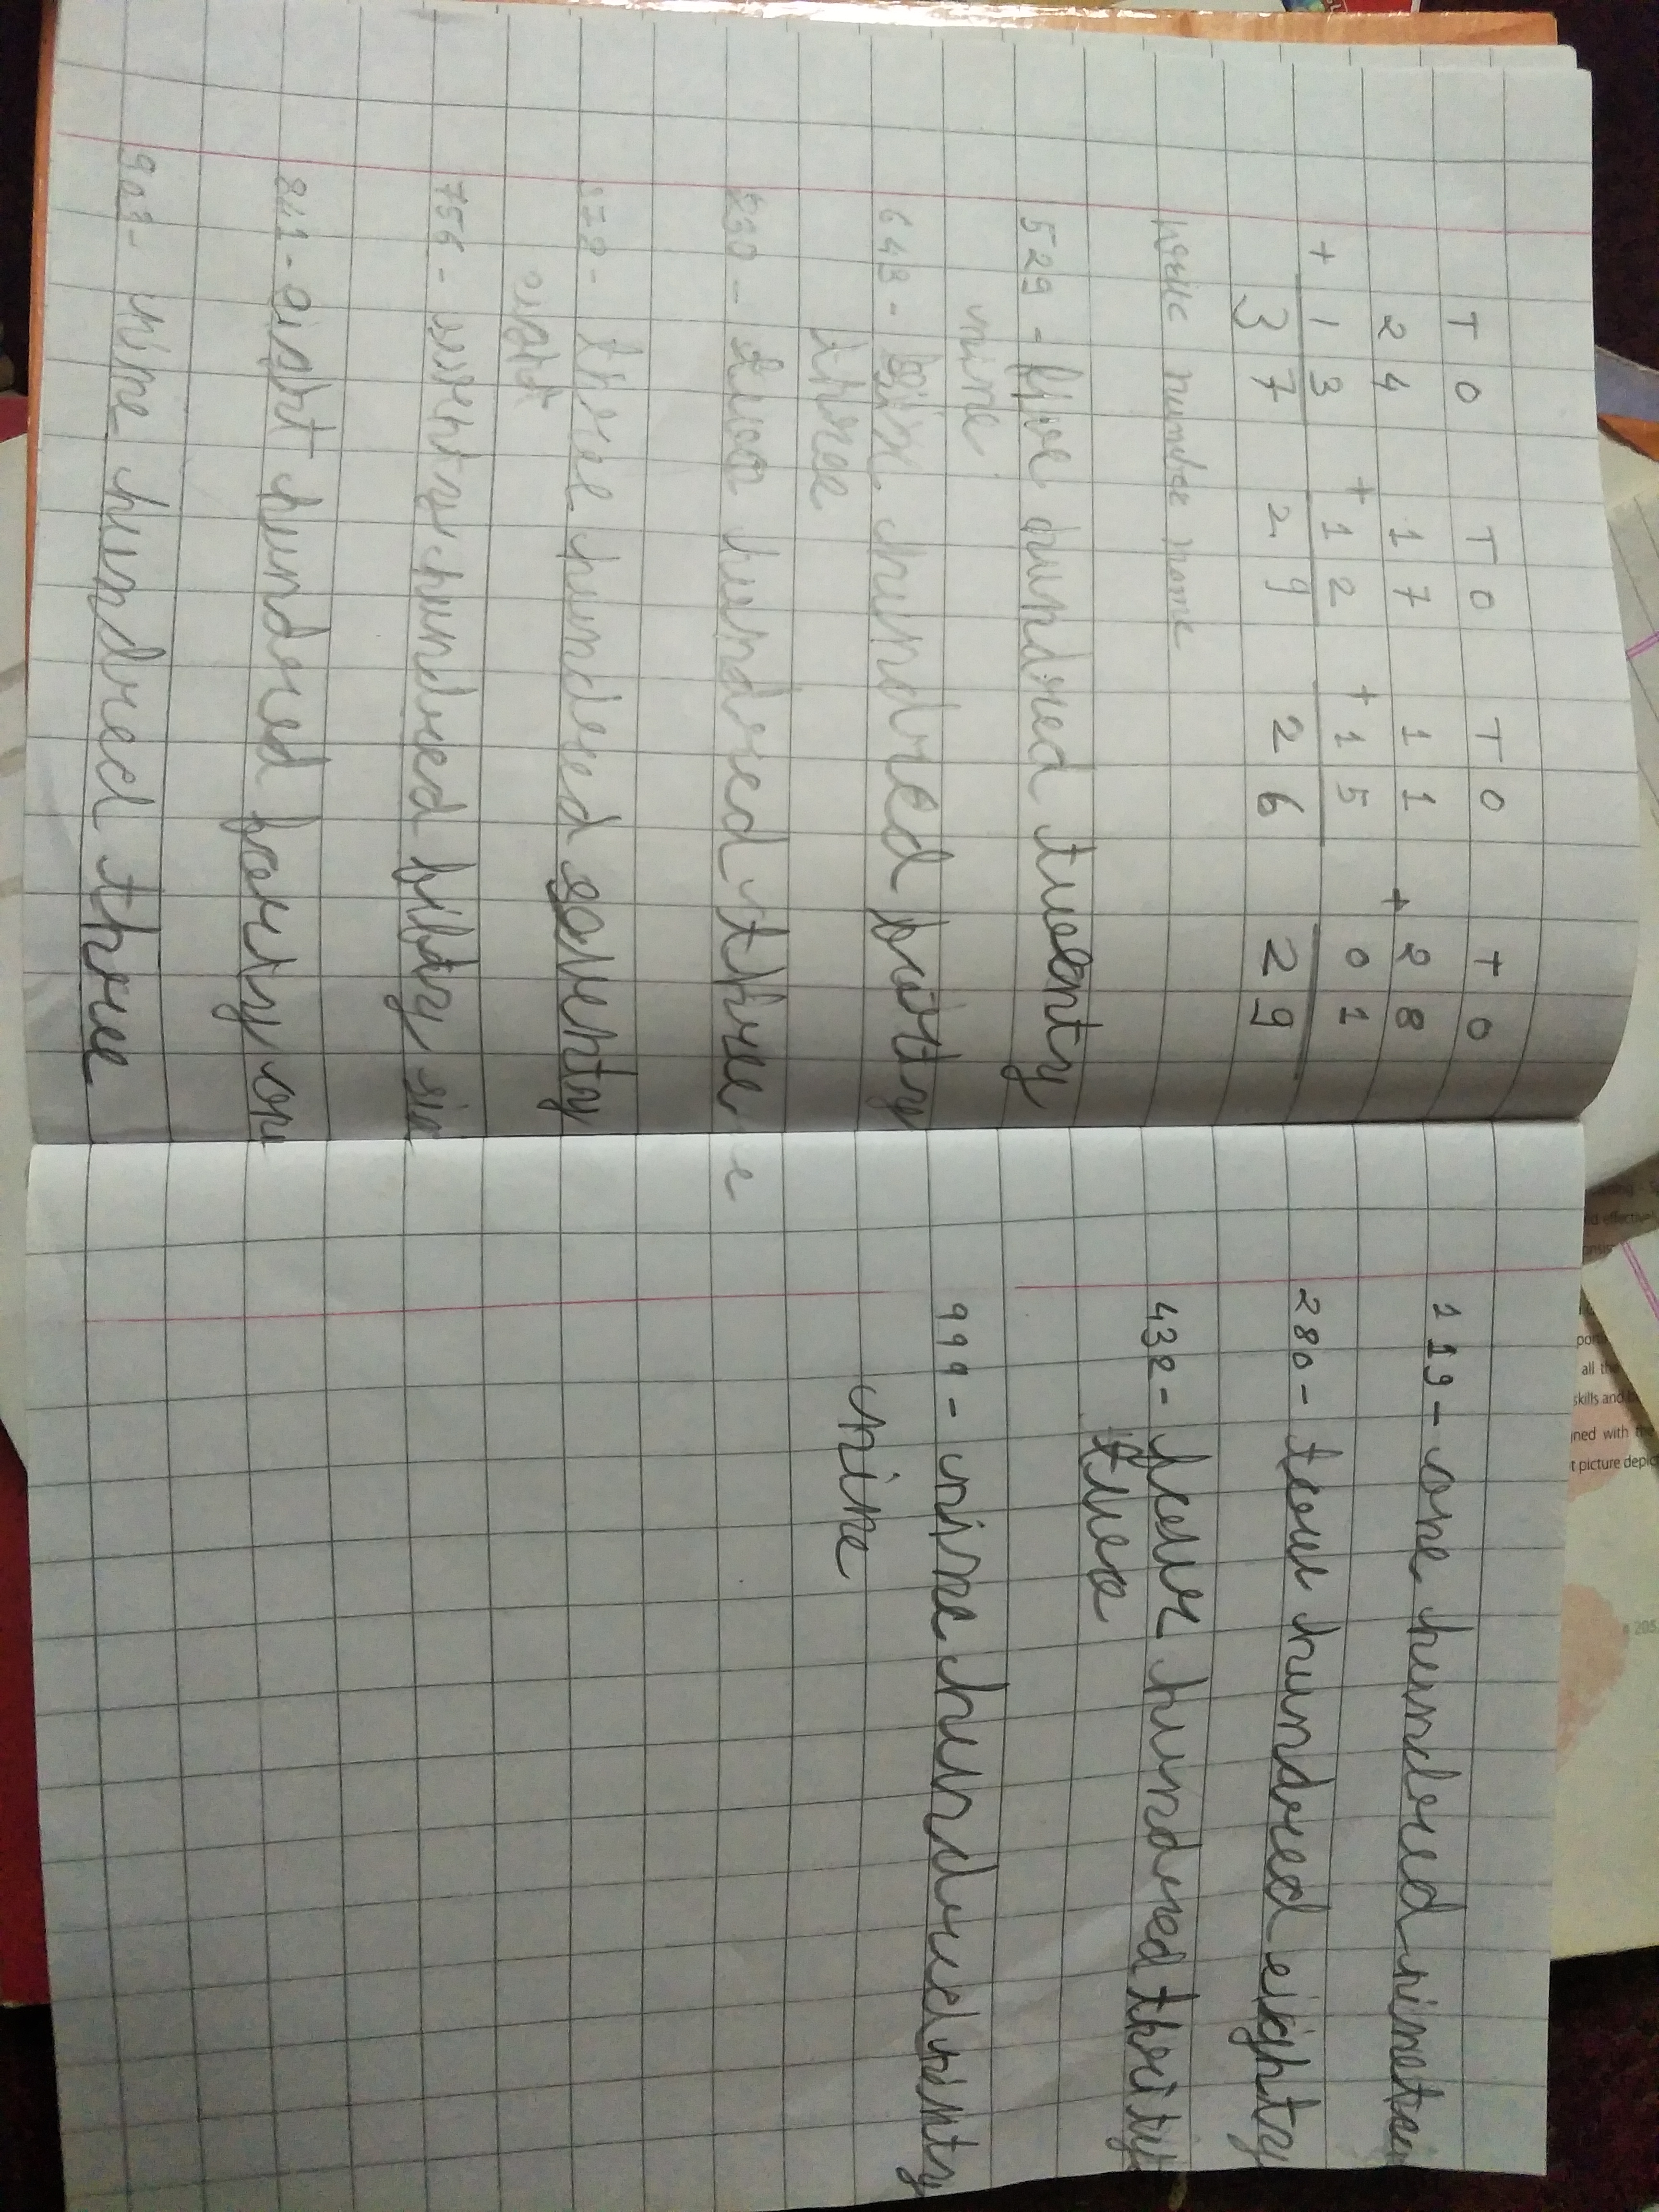 T O T O T O T O
2 4 1 7 1 1 + 2 8
+ 1 3 + 1 2 + 1 5 0 1
3 7 2 9 2 6 2 9
number name
529 - five hundred twenty
nine
643 - six hundred forty
three
230 - two hundred three
378 - three hundred seventy
eight
756 - seventy hundred fifty six
841 - eight hundred forty one
903 - nine hundred three
119 - one hundred nineteen
280 - tow hundred eighty
432 - four hundred thirity
two
999 - nine hundred ninty
nine